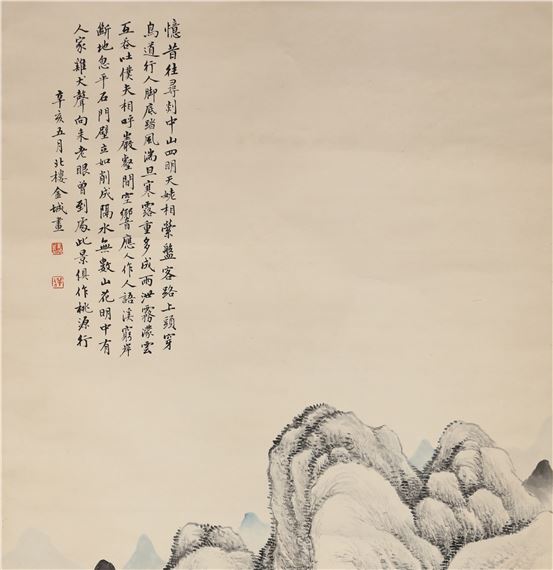 憶昔往尋剡中山四明天姥相縈盤客路上頭穿
鳥道行人脚底踏風湍旦寒露重多成雨泄霧濃雲
互吞吐僕夫相呼巖壑間空響應人作人語溪窮岸
斷地忽平石門壁立如削成隔水無數山花明中有
人家雞犬聲向來老眼曾到處此景俱作桃源行
辛亥五月北樓金城畫